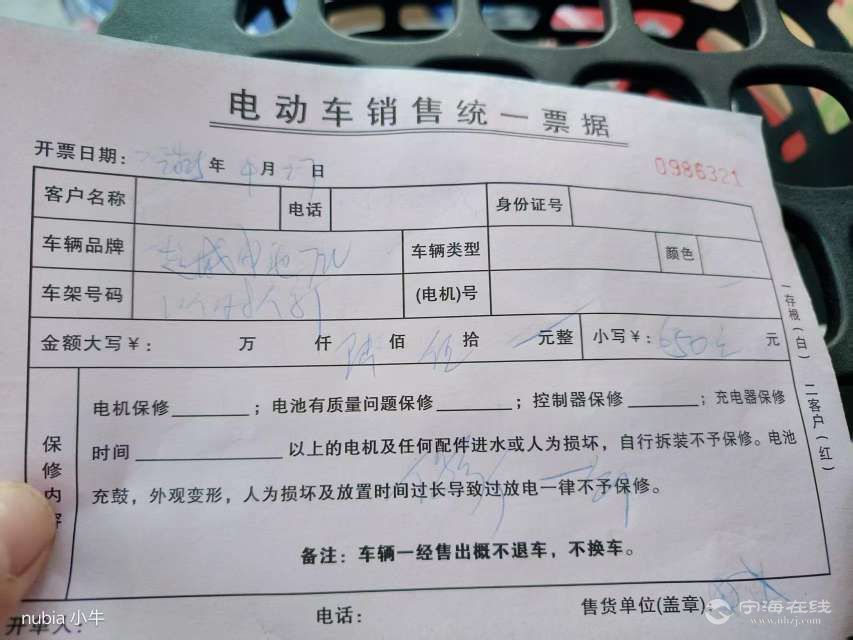 电动车销售统一票据
开票日期：2025年4月27日
0986321
客户名称 电话 身份证号
车辆品牌 超威电池 车辆类型 颜色
车架号码 (电机)号
金额大写￥： 万 仟 陆 佰 伍 拾 元整 小写￥：650元 元
保修内容
电机保修______；电池有质量问题保修______；控制器保修______；充电器保修
时间____________以上的电机及任何配件进水或人为损坏，自行拆装不予保修。电池
充鼓，外观变形，人为损坏及放置时间过长导致过放电一律不予保修。
备注：车辆一经售出概不退车，不换车。
开单人： 电话： 售货单位(盖章)
一存根（白） 二客户（红）
nubia 小牛
宁海在线
www.nhzj.com